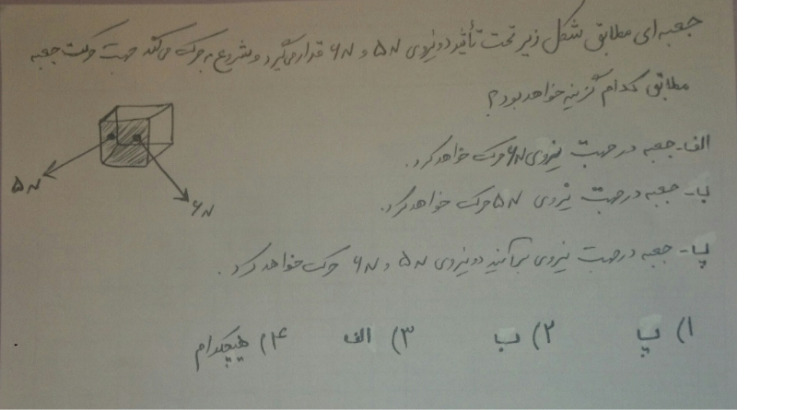 جعبه‌ای مطابق شکل زیر تحت تأثیر دو نیروی ۵N و ۶N قرار می‌گیرد و شروع به حرکت می‌کند جهت حرکت جعبه
مطابق کدام گزینه خواهد بود؟
الف- جعبه در جهت نیروی ۶N حرکت خواهد کرد.
ب- جعبه در جهت نیروی ۵N حرکت خواهد کرد.
پ- جعبه در جهت نیروی برآیند دو نیروی ۵N و ۶N حرکت خواهد کرد.
۱) پ ۲) ب ۳) الف ۴) هیچکدام
۵N
۶N